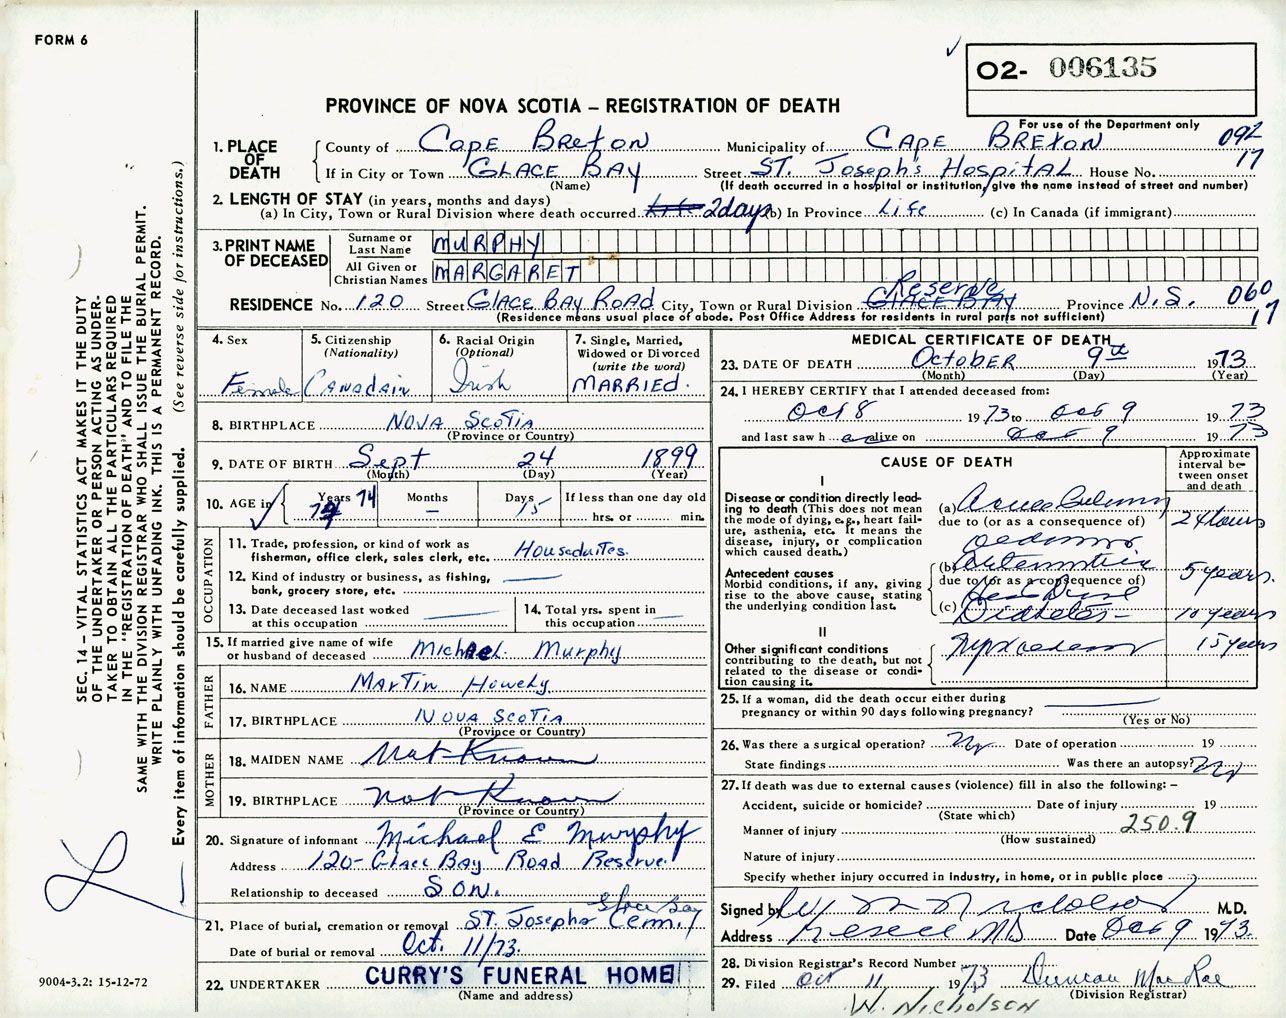 FORM 6
O2- 006135
For use of the Department only
PROVINCE OF NOVA SCOTIA – REGISTRATION OF DEATH
092
17
1. PLACE OF DEATH
County of CAPE BRETON Municipality of CAPE BRETON
If in City or Town GLACE BAY Street ST. Joseph's Hospital House No.
(Name) (If death occurred in a hospital or institution, give the name instead of street and number)
2. LENGTH OF STAY (in years, months and days)
(a) In City, Town or Rural Division where death occurred 2 days (b) In Province Life (c) In Canada (if immigrant)
3. PRINT NAME OF DECEASED
Surname or Last Name MURPHY
All Given or Christian Names MARGARET
RESIDENCE No. 120 Street GLACE BAY ROAD City, Town or Rural Division GLACE BAY Reserve Province N.S. 060
17
(Residence means usual place of abode. Post Office Address for residents in rural parts not sufficient)
4. Sex
Female
5. Citizenship
(Nationality)
Canadain
6. Racial Origin
(Optional)
Irish
7. Single, Married, Widowed or Divorced
(write the word)
MARRIED.
8. BIRTHPLACE NOVA SCOTIA
(Province or Country)
9. DATE OF BIRTH Sept 24 1899
(Month) (Day) (Year)
10. AGE in Years 74 Months — Days 15 If less than one day old
hrs. or min.
OCCUPATION
11. Trade, profession, or kind of work as fisherman, office clerk, sales clerk, etc. Houseduites.
12. Kind of industry or business, as fishing, bank, grocery store, etc.
13. Date deceased last worked at this occupation
14. Total yrs. spent in this occupation
15. If married give name of wife or husband of deceased Michael Murphy
FATHER
16. NAME MARTIN
17. BIRTHPLACE NOVA SCOTIA
(Province or Country)
MOTHER
18. MAIDEN NAME Not Known
19. BIRTHPLACE Not Known
(Province or Country)
20. Signature of informant Michael E Murphy
Address 120- Glace Bay Road Reserve.
Relationship to deceased SON.
21. Place of burial, cremation or removal ST. Josephs Cem. Glace Bay
Date of burial or removal Oct. 11/73.
22. UNDERTAKER CURRY'S FUNERAL HOME
(Name and address)
MEDICAL CERTIFICATE OF DEATH
23. DATE OF DEATH OCTOBER 9th 1973
(Month) (Day) (Year)
24. I HEREBY CERTIFY that I attended deceased from:
Oct 8 1973 to Oct 9 1973
and last saw h alive on Oct 9 1973
CAUSE OF DEATH
Approximate interval between onset and death
I
Disease or condition directly leading to death (This does not mean the mode of dying, e.g., heart failure, asthenia, etc. It means the disease, injury, or complication which caused death.)
(a)
due to (or as a consequence of)
24 hours
Antecedent causes
Morbid conditions, if any, giving rise to the above cause, stating the underlying condition last.
(b)
due to (or as a consequence of)
5 years.
(c) Diabetes 10 years
II
Other significant conditions contributing to the death, but not related to the disease or condition causing it.
Myxoedema 15 years
25. If a woman, did the death occur either during pregnancy or within 90 days following pregnancy?
(Yes or No)
26. Was there a surgical operation? No Date of operation 19
State findings Was there an autopsy? No
27. If death was due to external causes (violence) fill in also the following: –
Accident, suicide or homicide? Date of injury 19
(State which)
Manner of injury 250.9
(How sustained)
Nature of injury
Specify whether injury occurred in industry, in home, or in public place
Signed by Nicholson M.D.
Address Date Oct 9 1973.
28. Division Registrar's Record Number
29. Filed Oct 11 1973 Duncan MacRae
(Division Registrar)
W. NICHOLSON
SEC. 14 – VITAL STATISTICS ACT MAKES IT THE DUTY
OF THE UNDERTAKER OR PERSON ACTING AS UNDERTAKER TO OBTAIN ALL THE PARTICULARS REQUIRED
IN THE "REGISTRATION OF DEATH" AND TO FILE THE
SAME WITH THE DIVISION REGISTRAR WHO SHALL ISSUE THE BURIAL PERMIT.
WRITE PLAINLY WITH UNFADING INK. THIS IS A PERMANENT RECORD.
Every item of information should be carefully supplied. (See reverse side for instructions.)
9004-3.2: 15-12-72